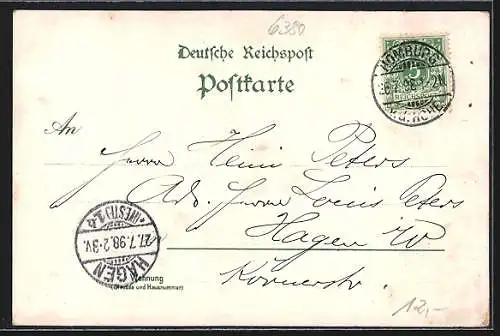 6380
Deutsche Reichspost
Postkarte
HOMBURG
26.7.98. 1-2N.
v.d. HÖHE
5
An
Herrn Heini Peters
Adr. Herrn Louis Peters
Hagen i/W
Körnerstr.
*(WESTF.)
27.7.98.2-3V.
HAGEN
Wohnung
(Strasse und Hausnummer)
12,-